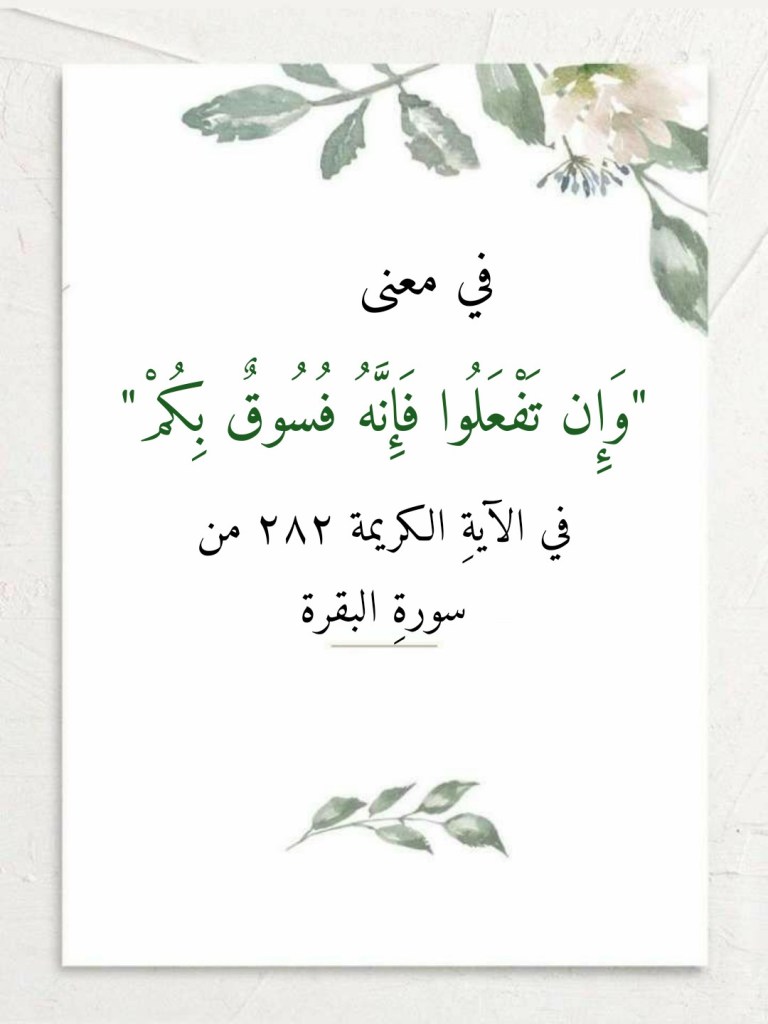 في معنى
"وَإِن تَفْعَلُوا فَإِنَّهُ فُسُوقٌ بِكُمْ"
في الآيةِ الكريمة ٢٨٢ من
سورةِ البقرة